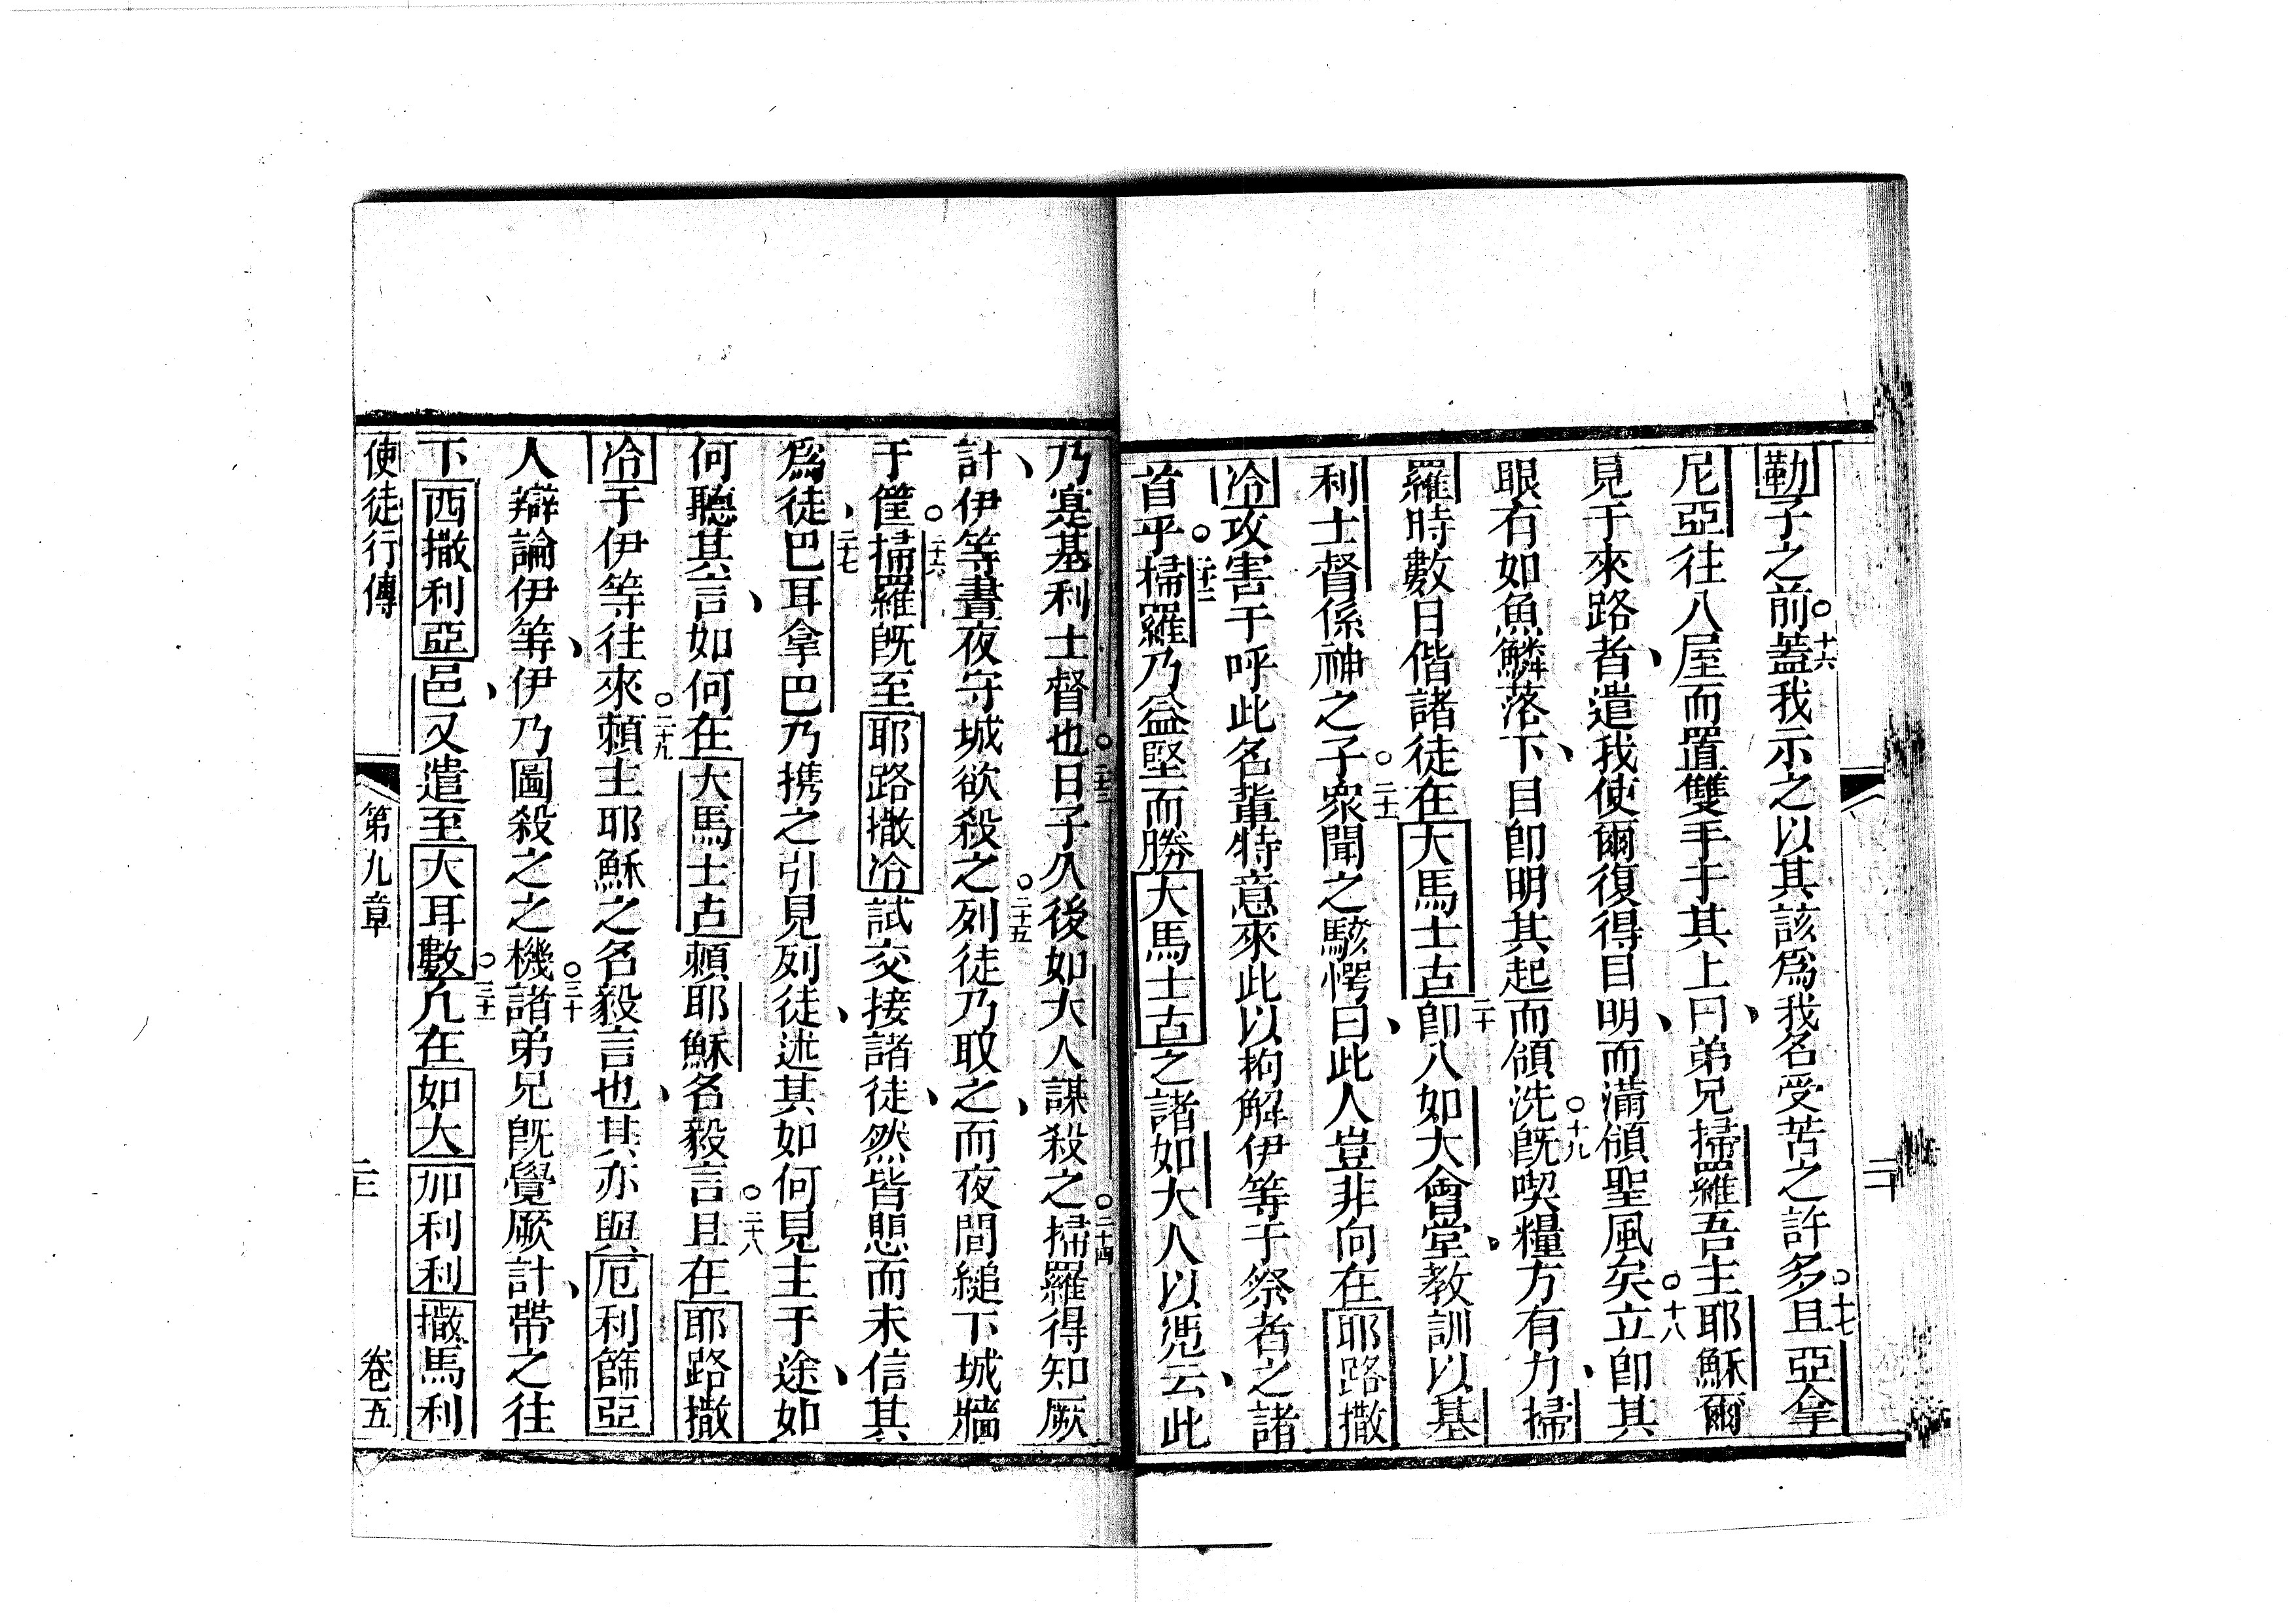 勒子之前○十六蓋我示之以其該爲我名受苦之許多○十七且亞拿
尼亞往入屋而置雙手于其上曰弟兄掃羅吾主耶穌爾
見于來路者、遣我使爾復得目明、而滿領聖風矣○十八立卽其
眼有如魚鱗落下、目卽明其起而領洗○十九旣喫糧方有力、掃
羅時數日偕諸徒在大馬士古二十卽入如大會堂、教訓以基
利士督係神之子○二十一衆聞之駭愕曰、此人豈非向在耶路撒
冷攻害于呼此名輩特意來此以拘解伊等于祭者之諸
首乎○二十二掃羅乃益堅而勝大馬士古之諸如大人以凴云、此
乃寔基利士督也○二十三日子久後如大人謀殺之○二十四掃羅得知厥
計、伊等晝夜守城欲殺之○二十五列徒乃取之、而夜間縋下城牆
于筐○二十六掃羅旣至耶路撒冷試交接諸徒、然皆懼而未信其
爲徒、二十七巴耳拿巴乃携之引見列徒、述其如何見主于途、如
何聽其言、如何在大馬士古頼耶穌名毅言○二十八且在耶路撒
冷于伊等往來○二十九頼主耶穌之名毅言也、其亦與厄利篩亞
人辯論伊等、伊乃圖殺之之機○三十諸弟兄旣覺厥計、帶之往
下西撒利亞邑、又遣至大耳數○三十一凢在如大加利利撒馬利
使徒行傳
第九章
卷五